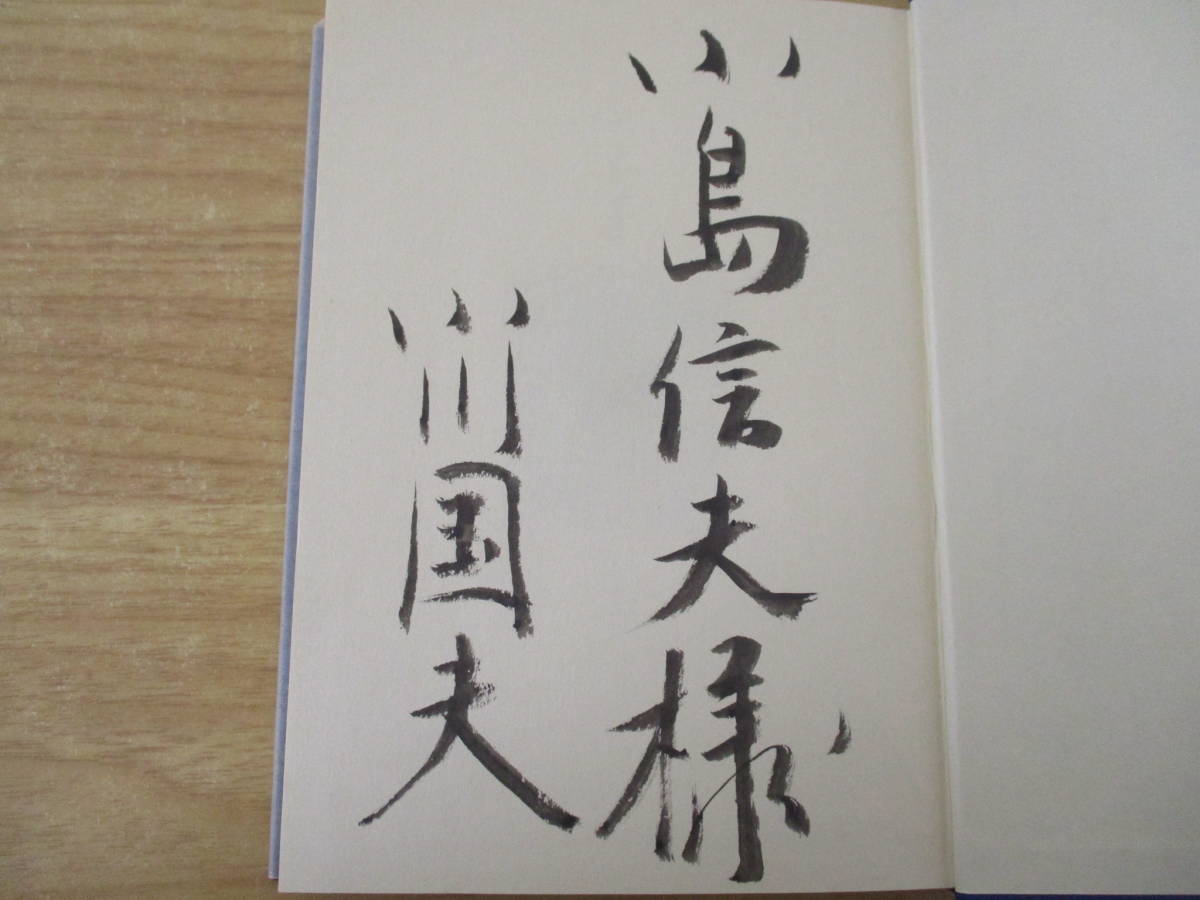 小島信夫様
小川国夫